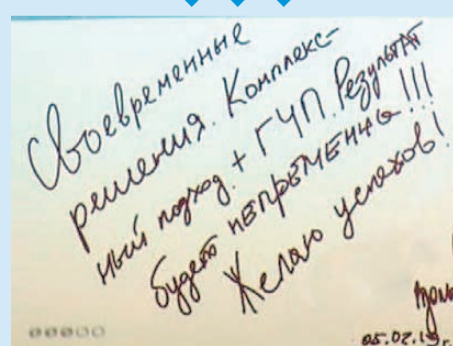 Своевременные
решения. Комплекс-
ный подход. + ГЧП. Результат
будет непременно!!!
Желаю успехов!
05.02.19г.
00000